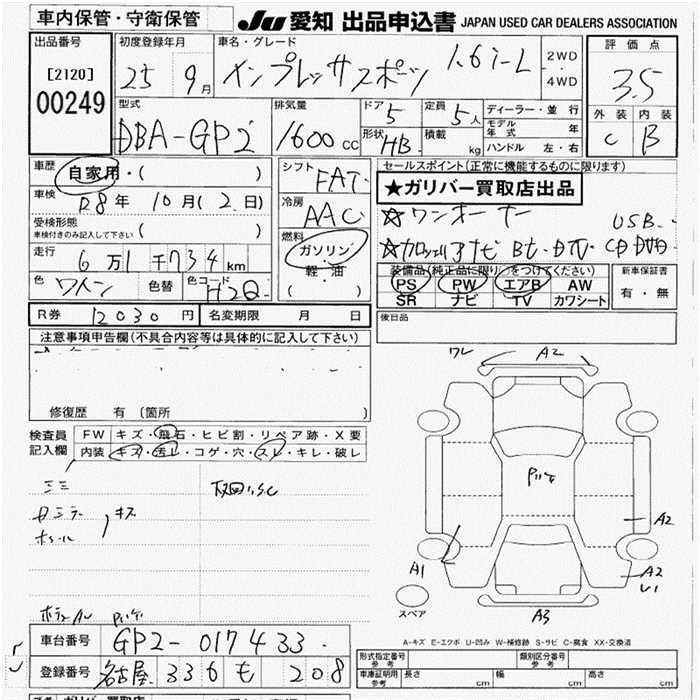 車内保管・守衛保管
JU 愛知 出品申込書 JAPAN USED CAR DEALERS ASSOCIATION
出品番号
[2120]
00249
初度登録年月
25 9月
車名・グレード
インプレッサスポーツ 1.6i-L
2WD
4WD
評価点
3.5
外装 内装
C B
型式
DBA-GP2
排気量
1600 cc
ドア 5
形状 HB
定員 5人
積載 kg
ディーラー・並行
モデル年式
ハンドル 左・右
車歴 自家用・( )
車検 R8年 10月(2日)
受検形態
車検付きのみ記入して下さい ( )
走行 6万1千734km
色 ワイン 色替 色コード H2Q
シフト FAT
冷房 AAC
燃料
ガソリン
軽・油
( )
セールスポイント(正常に機能するものに限ります)
★ガリバー買取店出品
☆ワンオーナー USB
☆カロッツェリアナビ Bt・DTV・CD DVD
装備品(純正品に限り○をつけてください)
PS PW エアB AW
SR ナビ TV カワシート
新車保証書
有・無
R券 12030円 名変期限 月 日
後日品
注意事項申告欄(不具合内容等は具体的に記入して下さい)
修復歴 有 (箇所 )
検査員記入欄
FW キズ・飛石・ヒビ割・リペア跡・X要
内装 キズ・汚レ・コゲ・穴・スレ・キレ・破レ
キズ
ワレ A2
Pハゲ
A2
A1
A2
A3
スペア
A-キズ E-エクボ U-凹み W-補修跡 S-サビ C-腐食 XX-交換済
車台番号 GP2-017433
登録番号 名古屋 336 も 208
形式指定番号 参考
類別区分番号 参考
車庫証明用 参考 長さ cm 幅 cm 高さ cm